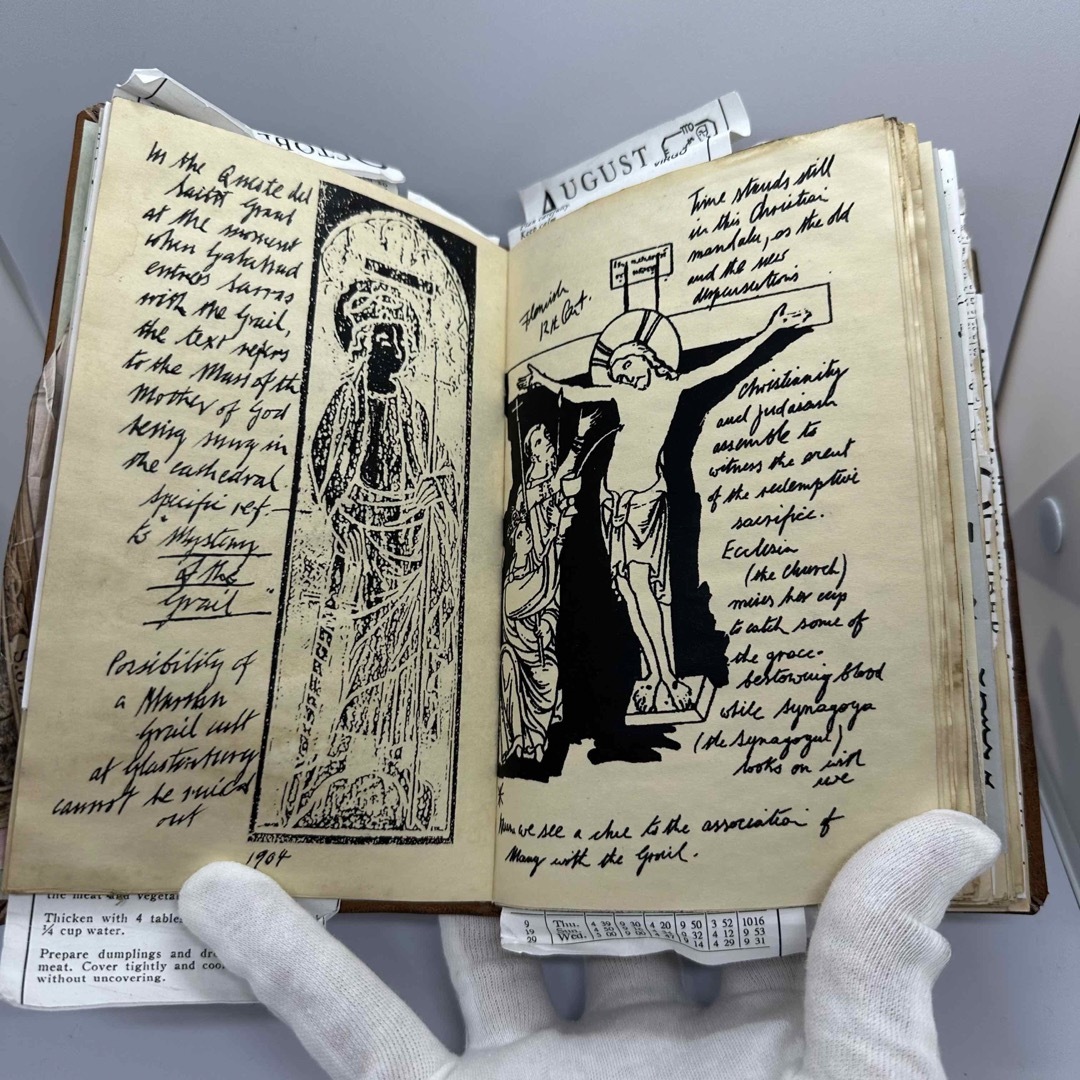 In the Queste del
Saint Graal
at the moment
when Galahad
enters Sarras
with the Grail,
the text refers
to the Mass of the
Mother of God
being sung in
the cathedral.
Specific ref-
to "Mystery
of the
Grail"
Possibility of
a Marian
Grail cult
at Glastonbury
cannot be ruled
out
1904
AUGUST
VIRGO
Time stands still
in this Christian
mandala, as the old
and the new
dispensations
Flemish
12th Cent.
Christianity
and Judaism
assemble to
witness the event
of the redemptive
sacrifice.
Ecclesia
(the Church)
raises her cup
to catch some of
the grace-
bestowing blood
while Synagoga
(the Synagogue)
looks on with
awe
we see a clue to the association of
Mary with the Grail.
the meat and
Thicken with 4
¼ cup water.
Prepare dumplings and
meat. Cover tightly and
without uncovering.
9 Thu. 4 39 9 30 4 20 9 50 3 52 1016
9 32 4 12 9 53
29 Wed. 9 14 4 28 9 31